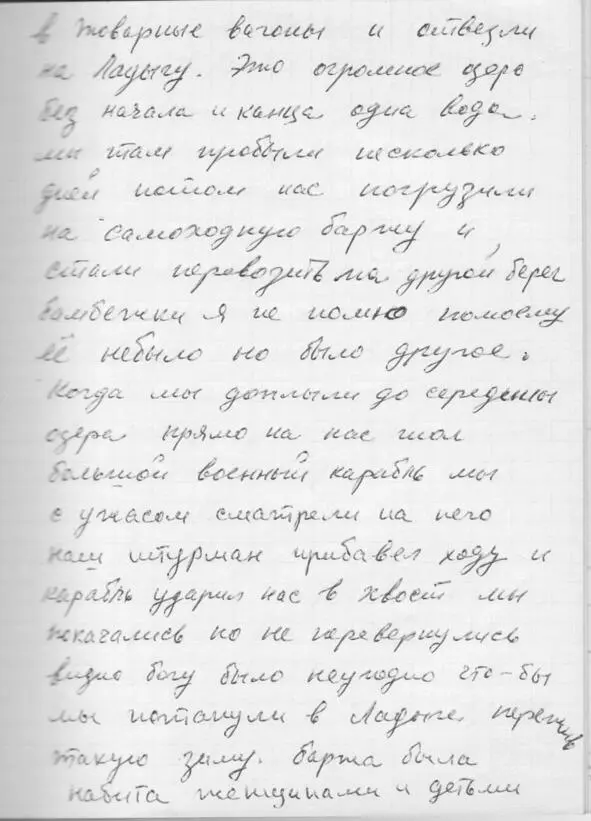 в товарные вагоны и отвезли
на Ладыгу. Это огромное озеро
без начала и канца одна вода.
мы там пробыли несколько
дней потом нас погрузили
на самоходную баржу и,
стали перевозить на другой берег
бамбёжки я не помню помоему
её небыло но было другое.
Когда мы доплыли до середины
озера прямо на нас шол
большой военный карабль мы
с ужасом сматрели на него
наш штурман прибавел ходу и
карабль ударил нас в хвост мы
покачались но не перевернулись
видно богу было неугодно что-бы
мы потанули в Ладоге. пережив
такую зиму. баржа была
набита женщинами и детьми